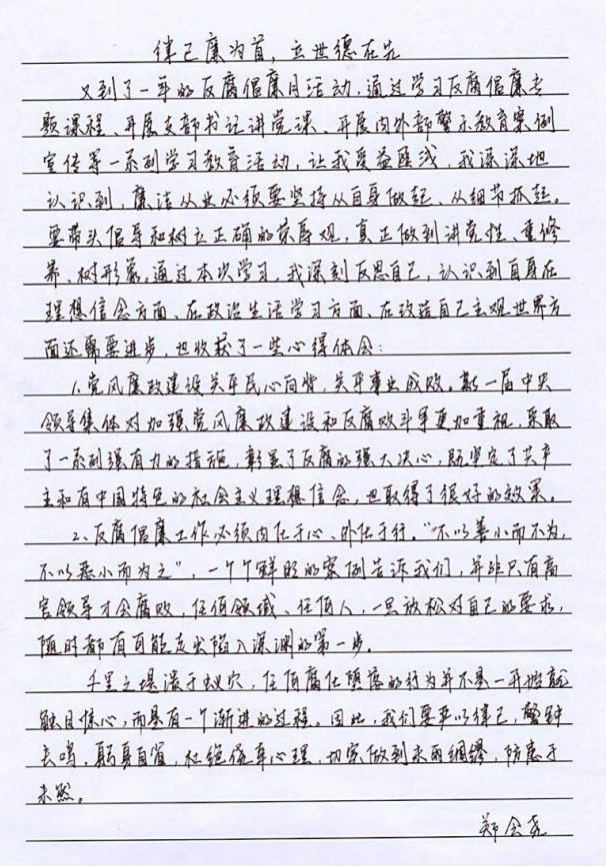 律己廉为首，立世德在先
又到了一年的反腐倡廉月活动，通过学习反腐倡廉专
题课程、开展支部书记讲党课、开展内外部警示教育案例
宣传等一系列学习教育活动，让我受益匪浅，我深深地
认识到，廉洁从业必须要坚持从自身做起、从细节抓起。
要带头倡导和树立正确的荣辱观，真正做到讲党性、重修
养、树形象。通过本次学习，我深刻反思自己，认识到自身在
理想信念方面、在政治生活学习方面、在改造自己主观世界方
面还需要进步，也收获了一些心得体会：
1、党风廉政建设关乎民心向背，关乎事业成败。新一届中央
领导集体对加强党风廉政建设和反腐败斗争更加重视，采取
了一系列强有力的措施，彰显了反腐的强大决心，既坚定了共产
主和有中国特色的社会主义理想信念，也取得了很好的效果。
2、反腐倡廉工作必须内化于心、外化于行。“不以善小而不为，
不以恶小而为之”，一个个鲜明的案例告诉我们，并非只有高
官领导才会腐败，任何领域、任何人，一旦放松对自己的要求，
随时都有可能走出陷入深渊的第一步。
千里之堤溃于蚁穴，任何腐化堕落的行为并不是一开始就
触目惊心，而是有一个渐进的过程。因此，我们要严以律己，警钟
长鸣，躬身自省，杜绝侥幸心理，切实做到未雨绸缪，防患于
未然。